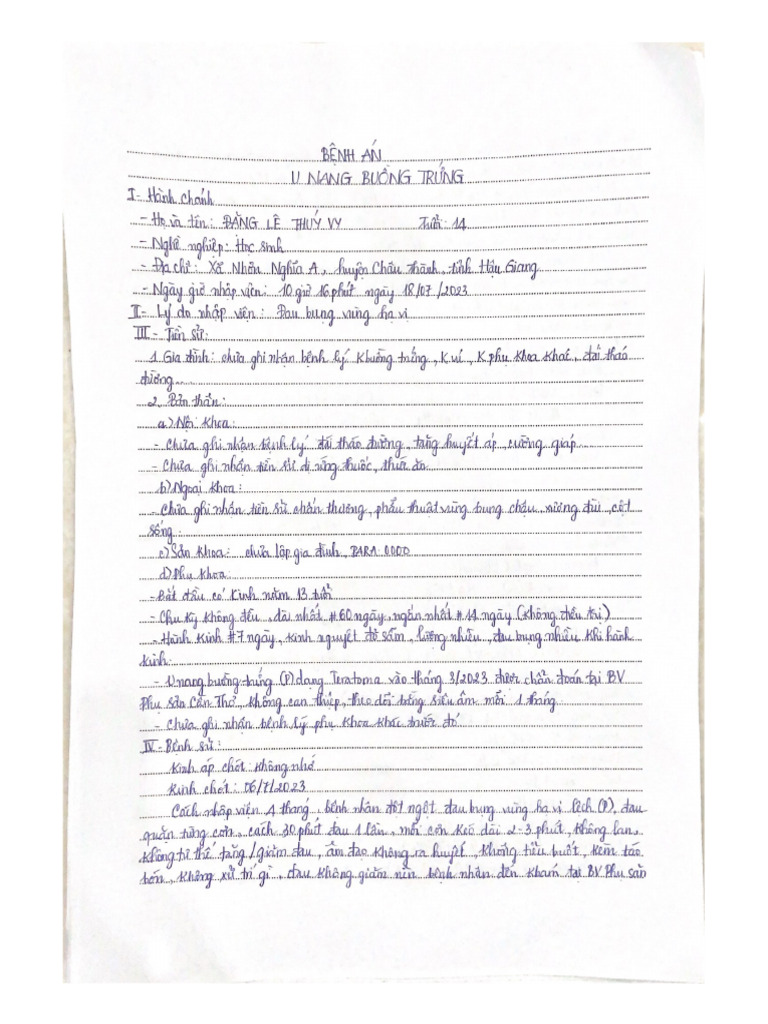 BỆNH ÁN
U NANG BUỒNG TRỨNG
I- Hành chánh
- Họ và tên: ĐẶNG LÊ THUÝ VY Tuổi: 14
- Nghề nghiệp: Học sinh
- Địa chỉ: Xã Nhơn Nghĩa A, huyện Châu Thành, tỉnh Hậu Giang
- Ngày giờ nhập viện: 10 giờ 16 phút ngày 18/07/2023
II- Lý do nhập viện: Đau bụng vùng hạ vị
III- Tiền sử:
1. Gia đình: chưa ghi nhận bệnh lý K buồng trứng, K vú, K phụ khoa khác, đái tháo
đường
2. Bản thân:
a) Nội khoa:
- Chưa ghi nhận bệnh lý đái tháo đường, tăng huyết áp, cường giáp
- Chưa ghi nhận tiền sử dị ứng thuốc, thức ăn
b) Ngoại khoa:
- Chưa ghi nhận tiền sử chấn thương, phẫu thuật vùng bụng chậu, xương đùi, cột
sống
c) Sản khoa: chưa lập gia đình, PARA: 0000
d) Phụ khoa:
- Bắt đầu có kinh năm 13 tuổi
- Chu kỳ không đều, dài nhất #60 ngày, ngắn nhất #14 ngày (không điều trị)
- Hành kinh #7 ngày, kinh nguyệt đỏ sẫm, lượng nhiều, đau bụng nhiều khi hành
kinh.
- U nang buồng trứng (P) dạng Teratoma vào tháng 3/2023 được chẩn đoán tại BV
Phụ sản Cần Thơ, không can thiệp, theo dõi bằng siêu âm mỗi 1 tháng
- Chưa ghi nhận bệnh lý phụ khoa khác trước đó
IV- Bệnh sử:
Kinh áp chót: không nhớ
Kinh chót: 06/7/2023
Cách nhập viện 4 tháng, bệnh nhân đột ngột đau bụng vùng hạ vị lệch (P), đau
quặn từng cơn, cách 30 phút đau 1 lần, mỗi cơn kéo dài 2-3 phút, không lan,
không tư thế tăng/giảm đau, âm đạo không ra huyết, không tiểu buốt, kèm táo
bón, không xử trí gì, đau không giảm nên bệnh nhân đến khám tại BV Phụ sản